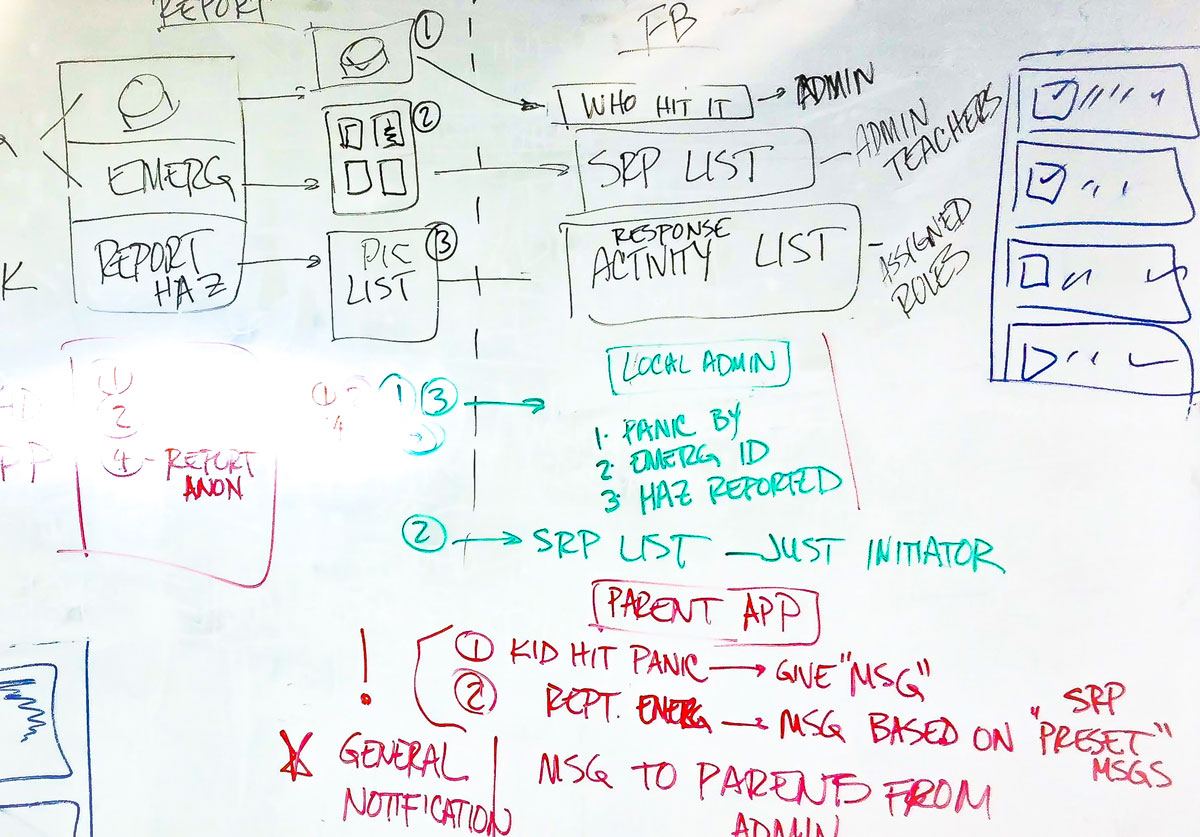 REPORT
FB
1
WHO HIT IT → ADMIN
2
EMERG
SRP LIST — ADMIN
TEACHERS
REPORT
HAZ
PIC
LIST
3
RESPONSE
ACTIVITY LIST - ASSIGNED
ROLES
K
LOCAL ADMIN
1
2
4 - REPORT
ANON
1 3 →
1. PANIC BY
2. EMERG ID
3. HAZ REPORTED
2 → SRP LIST — JUST INITIATOR
PARENT APP
! 1 KID HIT PANIC → GIVE "MSG"
2 REPT. EMERG → MSG BASED ON "SRP
PRESET"
MSGS
GENERAL
NOTIFICATION
MSG TO PARENTS FROM
ADMIN